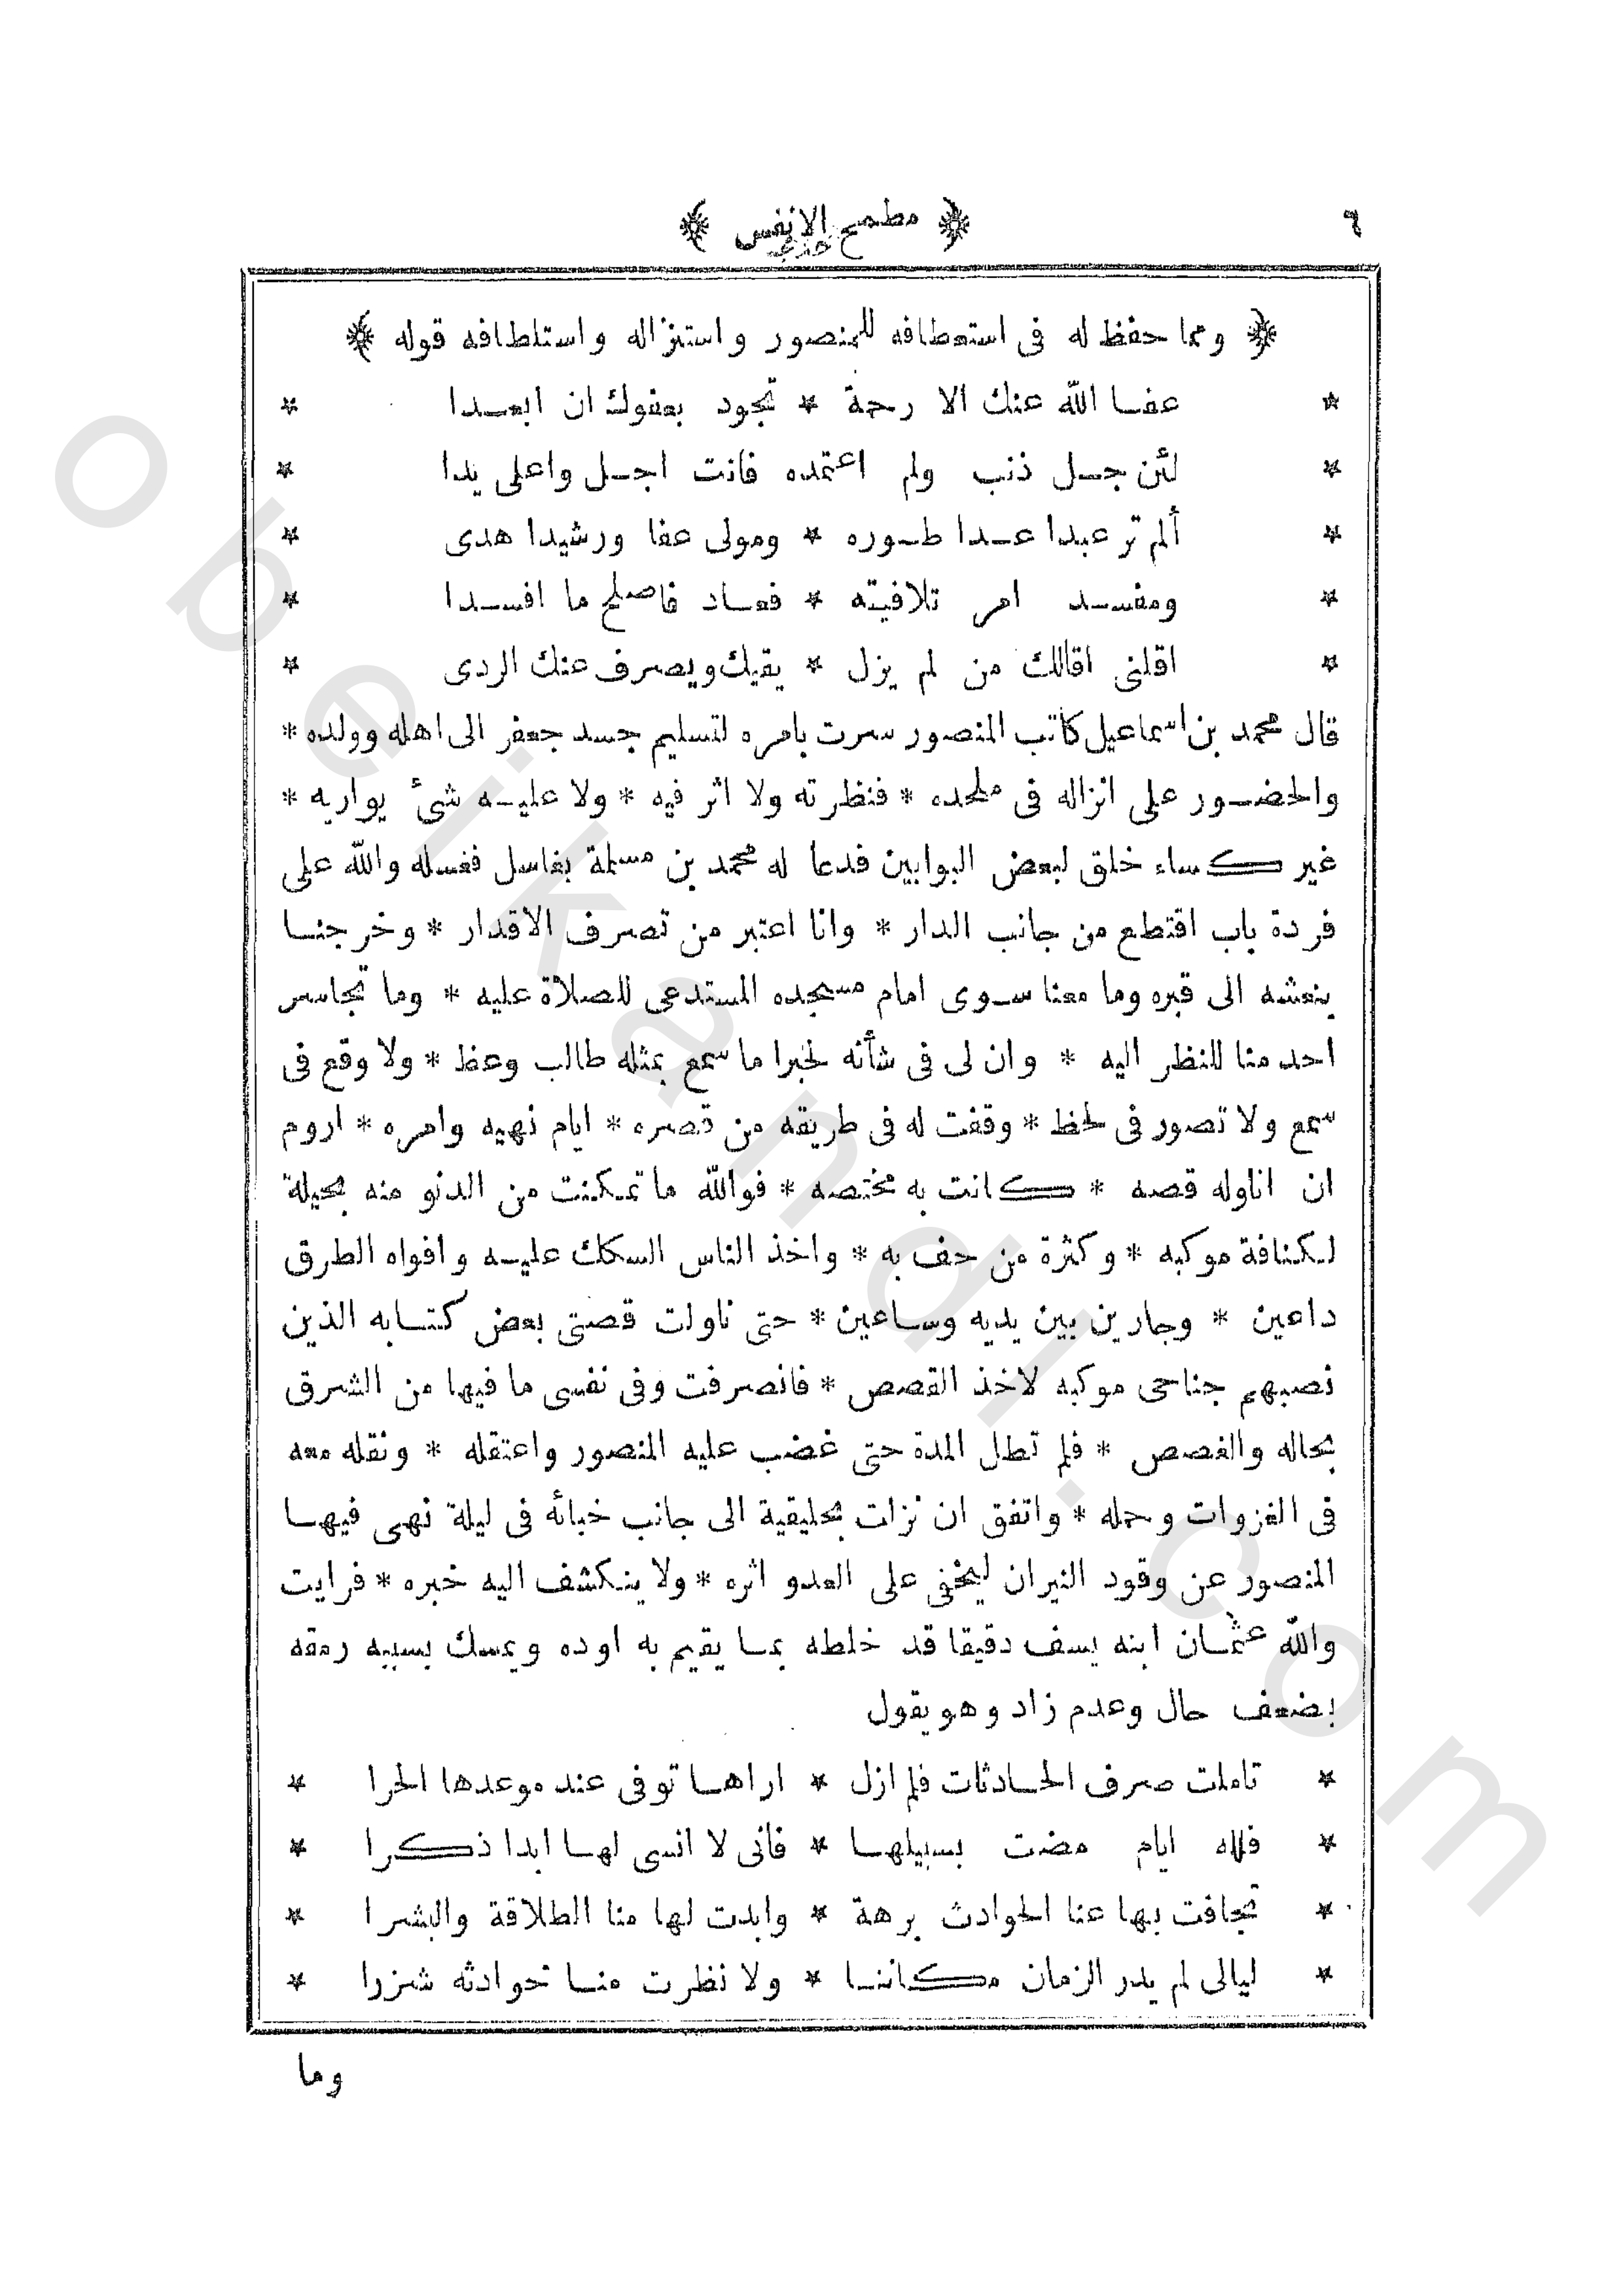 ٦ ﴿ مطمح الانفس ﴾
﴿ ومما حفظ له فى استعطافه للمنصور واستنزاله واستلطافه قوله ﴾
* عفا الله عنك الا رحمة * تجود بعفوك ان ابعدا *
* لئن جل ذنب ولم اعتمده فانت اجل واعلى يدا *
* ألم تر عبدا عدا طوره * ومولى عفا ورشيدا هدى *
* ومفسد امر تلافيته * فعاد فاصلح ما افسدا *
* اقلنى اقالك من لم يزل * يقيك ويصرف عنك الردى *
قال محمد بن اسماعيل كاتب المنصور سرت بامره لتسليم جسد جعفر الى اهله وولده *
والحضور على انزاله فى ملحده * فنظرته ولا اثر فيه * ولا عليه شئ يواريه *
غير كساء خلق لبعض البوابين فدعا له محمد بن مسلمة بغاسل فغسله والله على
فردة باب اقتطع من جانب الدار * وانا اعتبر من تصرف الاقدار * وخرجنا
بنعشه الى قبره وما معنا سوى امام مسجده المستدعى للصلاة عليه * وما تجاسر
احد منا للنظر اليه * وان لى فى شأنه لخبرا ما سمع بمثله طالب وعظ * ولا وقع فى
سمع ولا تصور فى لحظ * وقفت له فى طريقه من قصره * ايام نهيه وامره * اروم
ان اناوله قصه * كانت به مختصه * فوالله ما تمكنت من الدنو منه بحيلة
لكنافة موكبه * وكثرة من حف به * واخذ الناس السكك عليه وافواه الطرق
داعين * وجارين بين يديه وساعين * حتى ناولت قصتى بعض كتابه الذين
نصبهم جناحى موكبه لاخذ القصص * فانصرفت وفى نفسى ما فيها من الشرق
بحاله والغصص * فلم تطل المدة حتى غضب عليه المنصور واعتقله * ونقله معه
فى الغزوات وحمله * واتفق ان نزات بجليقية الى جانب خبائه فى ليلة نهى فيها
المنصور عن وقود النيران ليخفى على العدو اثره * ولا ينكشف اليه خبره * فرايت
والله عثمان ابنه يسف دقيقا قد خلطه بما يقيم به اوده ويمسك بسببه رمقه
بضعف حال وعدم زاد وهو يقول
* تاملت صرف الحادثات فلم ازل * اراها توفى عند موعدها الحرا *
* فلله ايام مضت بسبيلها * فانى لا انسى لها ابدا ذكرا *
* تجافت بها عنا الحوادث برهة * وابدت لها منا الطلاقة والبشرا *
* ليالى لم يدر الزمان مكاننا * ولا نظرت منا حوادثه شزرا *
وما
obeikandi.com